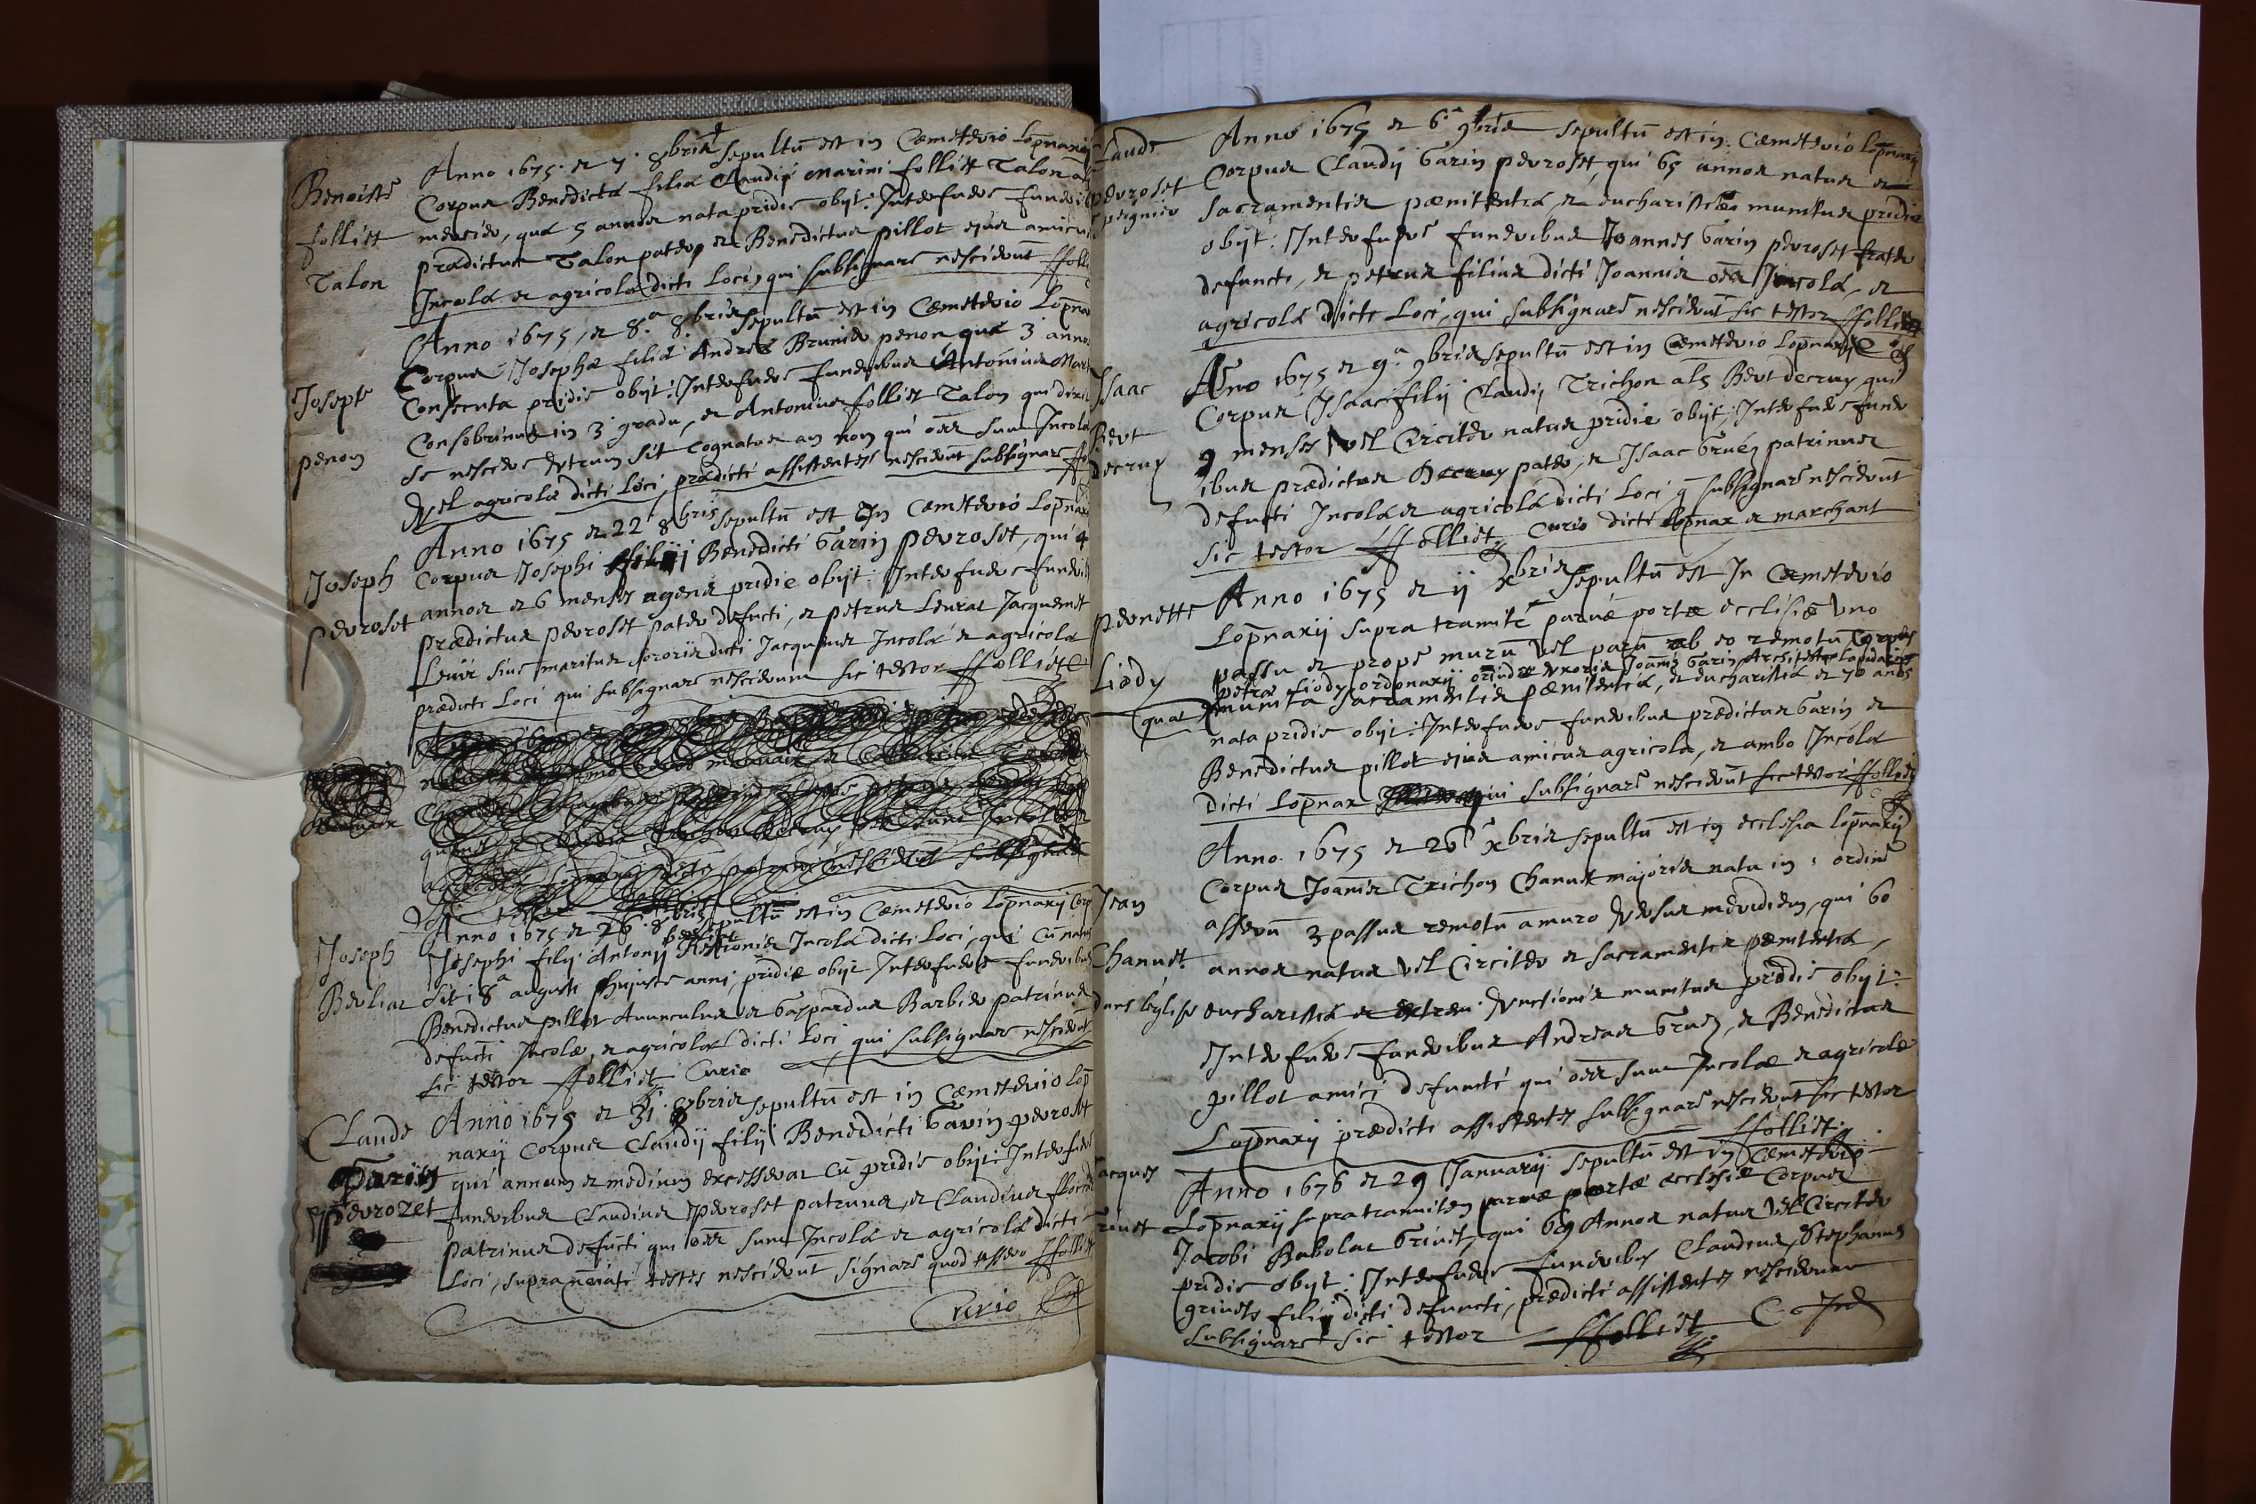 Benoiste
follitt
Talon
Anno 1675. et 7. 8bris sepultū est in Cæmeterio Lop̄naxij
Corpus Benedictæ filiæ Claudij Marini folliet Talon
mercier, quæ 5 annos nata pridie obijt: Interfuere funerib
prædictus Talon pater, et Benedictus pillot ejus amicus
Incolæ et agricolæ dicti Loci, qui subsignare nescierunt ffolli
Josepte
penon
Anno 1675, et 8.a 8bris sepultū est in Cæmeterio Lop̄na
Corpus Josephæ filiæ Andreæ Brunier penon, quæ 3 annos
Consecuta pridie obijt: Interfuere funeribus Antonius Mar
Consobrinus in 3 gradu, et Antonius folliet Talon qui dixit
se nescire utrum sit cognatus an non qui oēs sunt Incolæ
Vel agricolæ dicti Loci, prædicti assistentes nescierūt subsignare ffo
Joseph
peroset
Anno 1675 et 22 8bris sepultū est In Cæmeterio Lop̄nax
Corpus Josephi filij Benedicti Garin peroset, qui 4
annos et 6 menses agens pridie obijt: Interfuere funerib
prædictus peroset pater defucti, et petrus Leurat Jacquemet
Levir sive maritus sororis dicti Jacquemet Incolæ et agricolæ
prædicti Loci qui subsignare nescierunt sic testor ffolliet
Joseph
Berliat
Anno 1675 et 26 8bris sepultū est in Cæmeterio Lop̄naxij Corp
Josephi filij Antonij Incolæ dicti Loci, qui cū natus
sit 18a augusti hujusce anni, pridie obijt Interfuere funeribus
Benedictus pillot Avunculus et Gaspardus Barbier patrinus
defucti Incolæ, et agricolæ dicti Loci, qui subsignare nescierut
sic testor ffolliet Curio
Claude
Garin
Perozet
Anno 1675 et 31 8bris sepultū est in Cæmeterio Lop̄
naxij Corpus Claudij filij Benedicti Garin peroset
qui annum et medium excesserat cū pridie obijt: Interfuere
funeribus Claudius peroset patruus, et Claudius
patrinus defucti qui oēs sunt Incolæ et agricolæ dicti
Loci, supra nōiati testes nescierūt signare quod assero ffolliet
Curio
Claude
peroset
pernier
Anno 1675 et 6.a 9bris sepultū est in Cæmeterio Lop̄naxij
Corpus Claudij Garin peroset, qui 65 annos natus et
sacramentis pænitentiæ, et eucharistiæ munitus pridie
obijt: Interfuere funeribus Joannes Garin peroset frater
defuncti, et petrus filius dicti Joannis oēs Incolæ, et
agricolæ dicti Loci, qui subsignare nescierūt sic testor ffolliet
Isaac
Bert
decruy
Anno 1675 et 9.a 9bris sepultū est in cæmeterio Lop̄naxij
Corpus Isaac filij Claudij Trichon als Bert decruy qui
9 menses vel Circiter natus pridie obijt; Interfuere funer
ibus prædictus Decruy pater, et Isaac Gruéz patrinus
defucti Incolæ et agricolæ dicti Loci q̄ subsignare nescierūt
sic testor ffolliet Curio dicti Lop̄nax et marchant
pernette
Liody
Anno 1675 et ij xbris sepultū est In Cæmeterio
Lop̄naxij supra tramite parvæ portæ ecclisiæ Vno
passu et prope murū vel parū ab eo remotū Corpus
petræ Liody ordonaxij oriundæ uxoris Joānis Garin Architectæ
quæ munita sacramentis pænitentiæ, et eucharistiæ et 70 ānos
nata pridie obijt: Interfuere funeribus prædictus Garin et
Benedictus pillot ejus amicus agricola, et ambo Incolæ
dicti Lop̄nax qui subsignare nescierūt sic testor ffolliet
Jean
Chanut
dans leglise
Anno 1675 et 26 xbris sepultū est in ecclesia Lop̄naxij
Corpus Joānis Trichon Chanut majoris natu in 1 ordine
asserū 3 passus remotū a muro Versus meridiem, qui 60
annos natus vel Circiter et sacramentis pænitentiæ,
eucharistiæ et extremæ Vnctionis munitus pridie obijt:
Interfuere funeribus Andreas Gruéz, et Benedictus
pillot amici defuncti qui oēs sunt Incolæ et agricolæ
Lop̄naxij prædicti assistentes subsignare nescierūt sic testor
ffolliet
Jacques
Grivet
Anno 1676 et 29 Januarij sepultū est in Cæmeterio
Lop̄naxij supra tramitem parvæ portæ ecclesiæ Corpus
Jacobi Babolat Grivet, qui 69 Annos natus vel Circiter
pridie obijt: Interfuere funeribus Claudius, Stephanus
grivets filij dicti defuncti, prædicti assistentes nescierunt
subsignare sic testor ffolliet